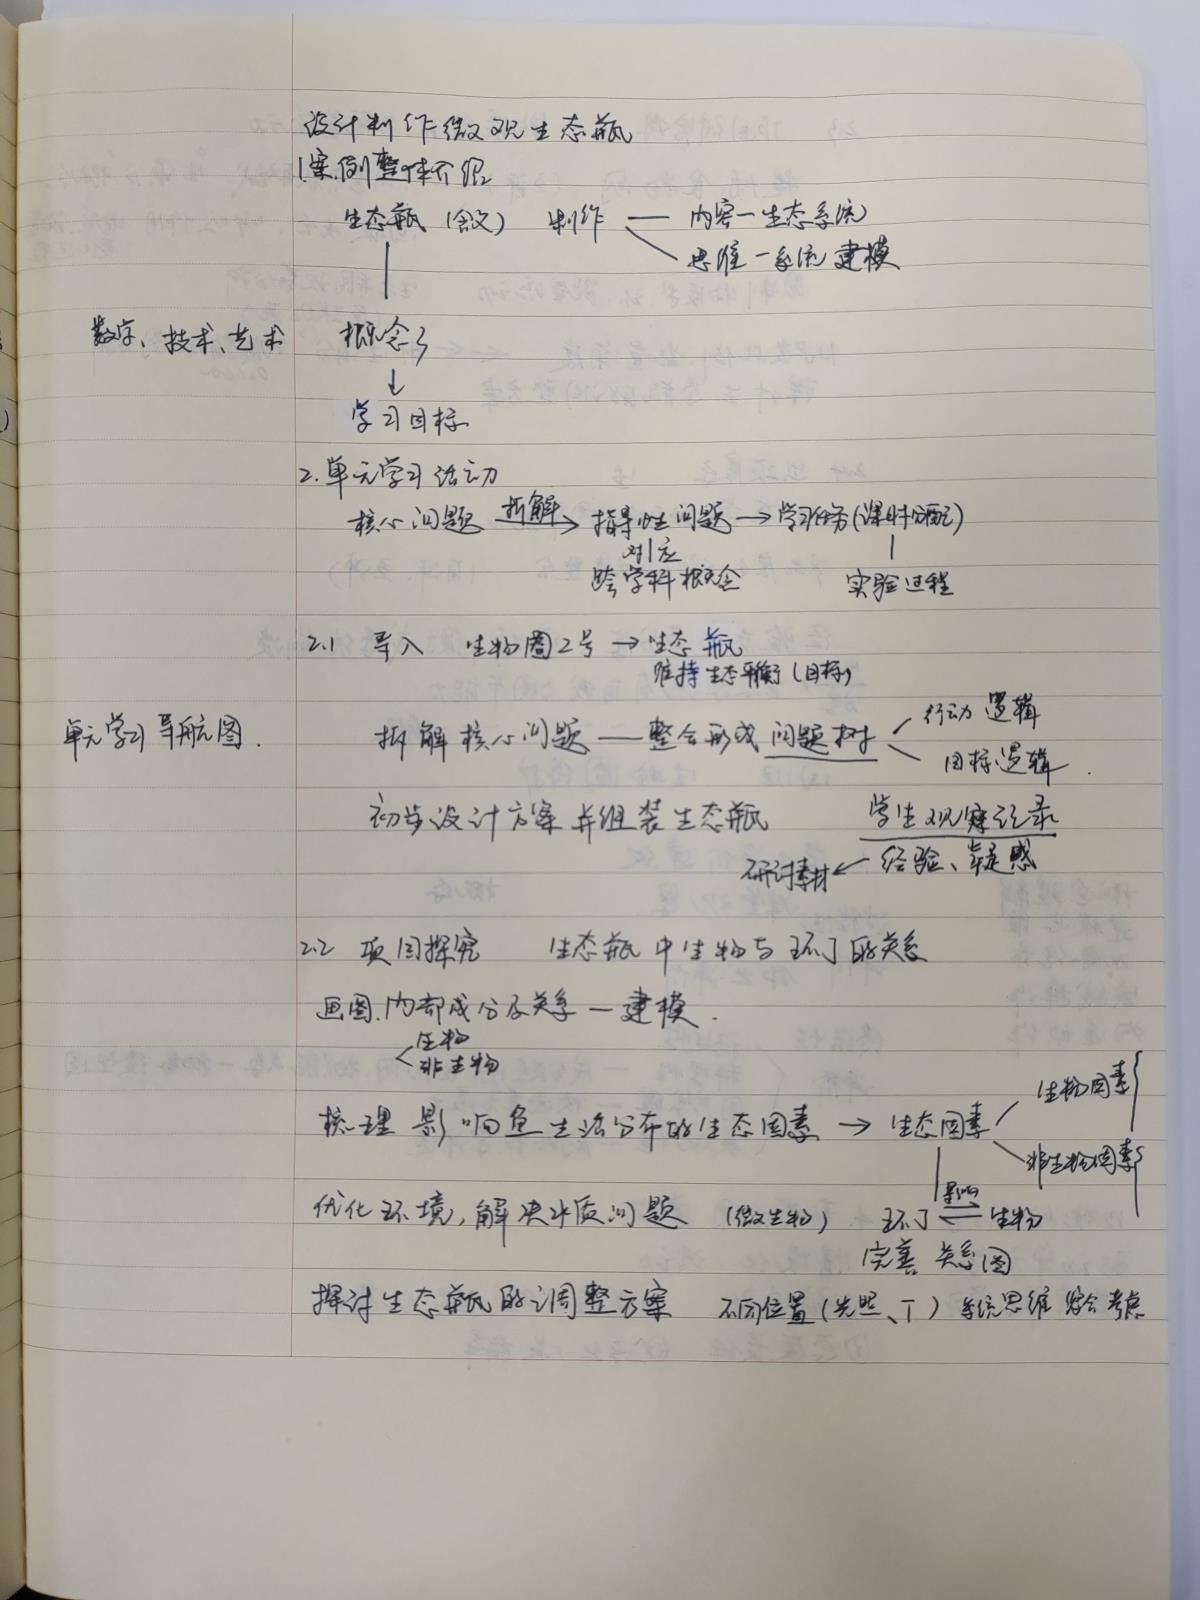 设计制作微观生态瓶
1.案例整体介绍
生态瓶(含义) 制作 — 内容—生态系统
思维—系统建模
数学、技术、艺术 概念
↓
学习目标
2.单元学习活动
核心问题 拆解→ 指导性问题→学习任务(课时分配)
对应
跨学科概念 实验过程
2.1 导入 生物圈2号→生态瓶
维持生态平衡(目标)
单元学习导航图. 拆解核心问题——整合形成问题树 行动逻辑
目标逻辑.
初步设计方案并组装生态瓶 学生观察记录
研讨素材← 经验、疑惑
2.2 项目探究 生态瓶中生物与环丁的关系
画图.内部成分及关系—建模.
生物
非生物
梳理影响鱼生活分布的生态因素 → 生态因素 生物因素
非生物因素
优化环境,解决水质问题 (微生物) 环丁 影响 生物
完善关系图
探讨生态瓶的调整方案 不同位置(光照、T) 系统思维 综合考虑